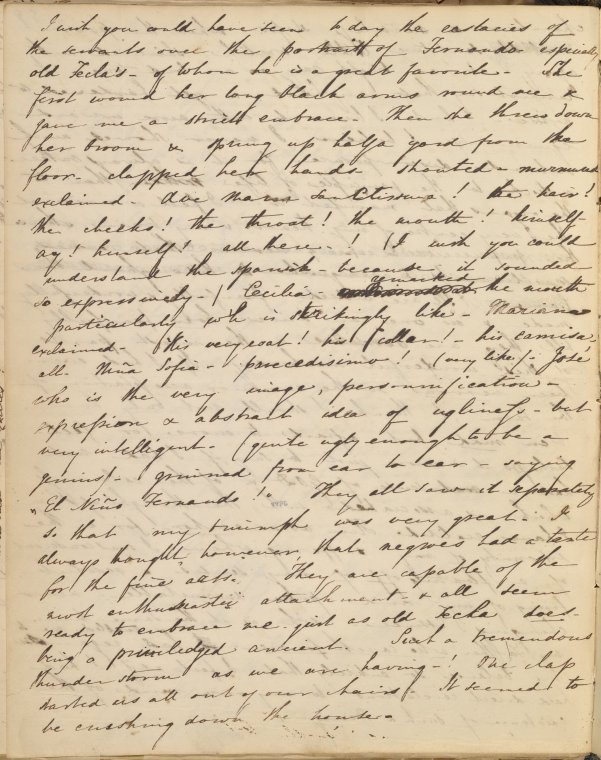 I wish you could have seen to day the ecstacies of
the servants over the portrait of Fernando especially
old Tecla's - of whom he is a great favorite - She
first wound her long black arms round me &
gave me a strict embrace. Then she threw down
her broom & sprung up half a yard from the
floor - clapped her hands shouted - murmured
exclaimed - Ave Maria Santissima! the hair!
the cheeks! the throat! the mouth! himself
ay! himself! all there - ! (I wish you could
understand the spanish - because it sounded
so expressively -) Cecilia - remarked the mouth
particularly wh is strikingly like - Mariana
exclaimed - His very coat! his collar! - his camisa -
all. Niña Sofia - parecedisimo! (very like) - José
who is the very image, personnification -
expression & abstract idea of ugliness - but
very intelligent - (quite ugly enough to be a
genius) - grinned from ear to ear - saying
"El Niño Fernando!" They all saw it separately
so that my triumph was very great. I
always thought, however, that negroes had a taste
for the fine arts. They are capable of the
most enthusiastic attachment & all seem
ready to embrace me just as old Tecla does -
being a priviledged ancient. Such a tremendous
thunder storm as we are having - ! One clap
started us all out of our chairs! It seemed to
be crashing down the house -